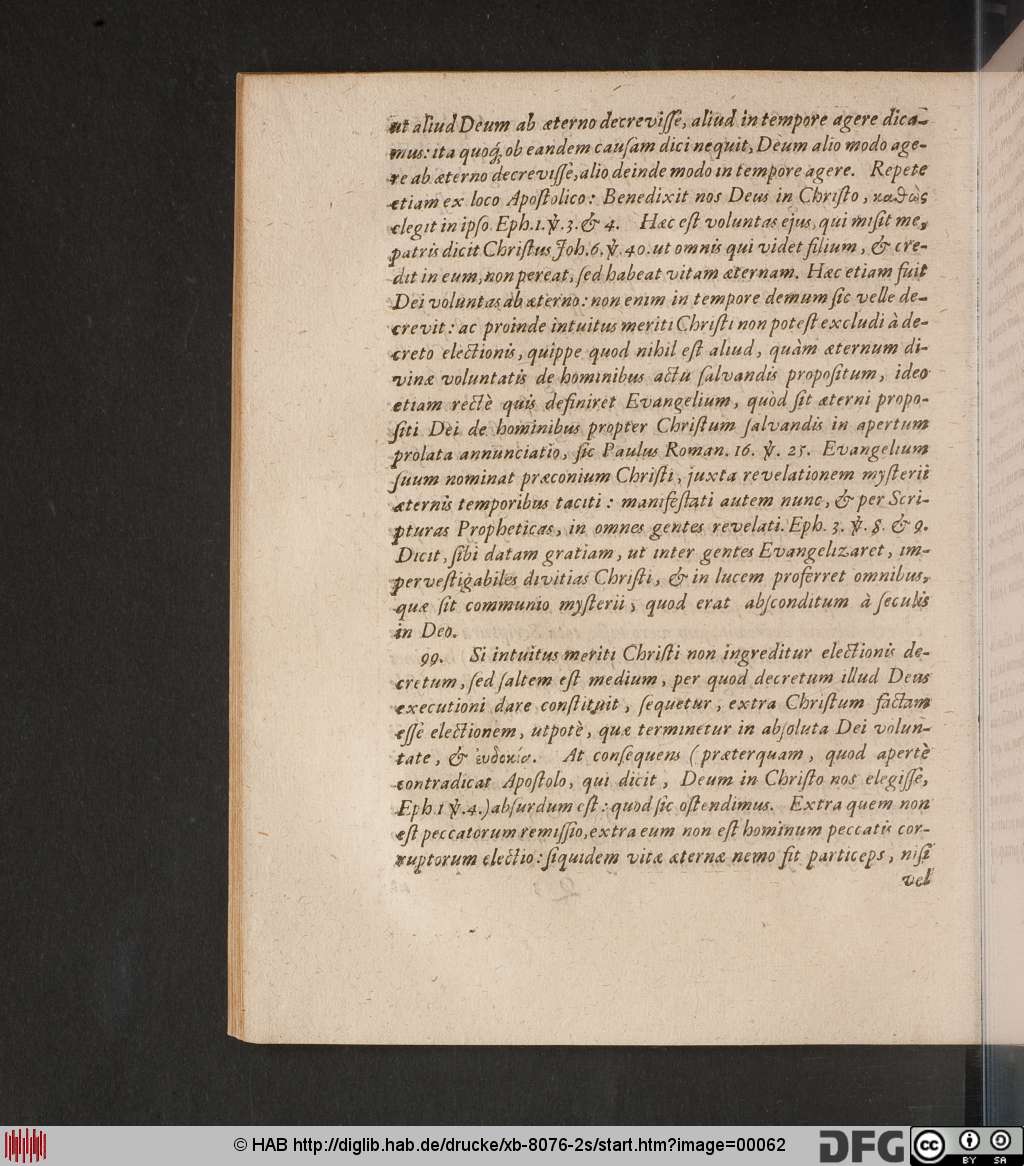 ut aliud Deum ab æterno decreviſſe, aliud in tempore agere dica-
mus: ita quoq́; ob eandem cauſam dici nequit, Deum alio modo age-
re ab æterno decreviſſe, alio deinde modo in tempore agere. Repete
etiam ex loco Apoſtolico: Benedixit nos Deus in Chriſto, καθὼς
elegit in ipſo Eph. 1. ℣. 3. & 4. Hæc eſt voluntas ejus, qui miſit me,
patris dicit Chriſtus Joh. 6. ℣. 40. ut omnis qui videt filium, & cre-
dit in eum, non pereat, ſed habeat vitam æternam. Hæc etiam fuit
Dei voluntas ab æterno: non enim in tempore demum ſic velle de-
crevit: ac proinde intuitus meriti Chriſti non poteſt excludi à de-
creto electionis, quippe quod nihil eſt aliud, quàm æternum di-
vinæ voluntatis de hominibus actu ſalvandis propoſitum, ideo
etiam rectè quis definiret Evangelium, quòd ſit æterni propo-
ſiti Dei de hominibus propter Chriſtum ſalvandis in apertum
prolata annunciatio, ſic Paulus Roman. 16. ℣. 25. Evangelium
ſuum nominat præconium Chriſti, juxta revelationem myſterii
æternis temporibus taciti: manifeſtati autem nunc, & per Scri-
pturas Propheticas, in omnes gentes revelati. Eph. 3. ℣. 8. & 9.
Dicit, ſibi datam gratiam, ut inter gentes Evangelizaret, im-
perveſtigabiles divitias Chriſti, & in lucem proferret omnibus,
quæ ſit communio myſterii, quod erat abſconditum à ſeculis
in Deo.
99. Si intuitus meriti Chriſti non ingreditur electionis de-
cretum, ſed ſaltem eſt medium, per quod decretum illud Deus
executioni dare conſtituit, ſequetur, extra Chriſtum factam
eſſe electionem, utpotè, quæ terminetur in abſoluta Dei volun-
tate, & ἐυδοκίᾳ. At conſequens (præterquam, quod apertè
contradicat Apoſtolo, qui dicit, Deum in Chriſto nos elegiſſe,
Eph. 1 ℣. 4.) abſurdum eſt: quod ſic oſtendimus. Extra quem non
eſt peccatorum remiſſio, extra eum non eſt hominum peccatis cor-
ruptorum electio: ſiquidem vitæ æternæ nemo fit particeps, niſi
vel
© HAB http://diglib.hab.de/drucke/xb-8076-2s/start.htm?image=00062
DFG
cc BY SA